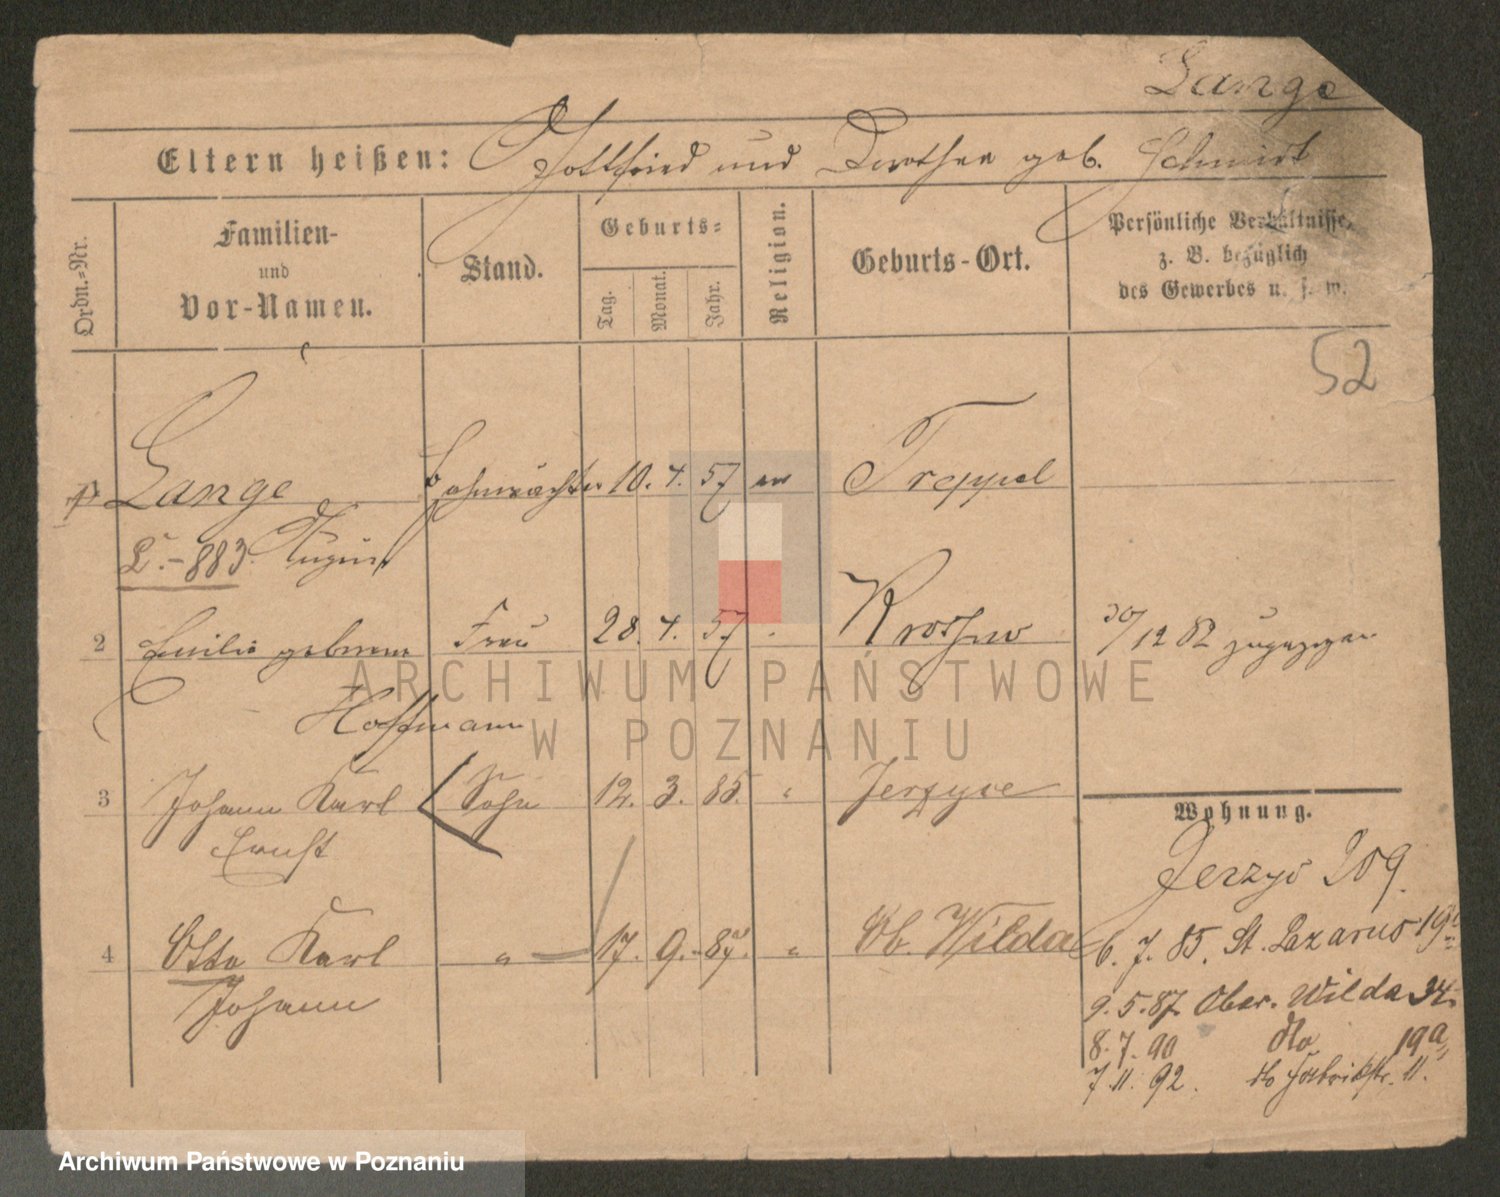 Lange
Eltern heißen: Gottfried und Dorothea geb. Schmidt
Ordn.-Nr.
Familien-
und
Vor-Namen.
Stand.
Geburts-
Tag.
Monat.
Jahr.
Religion.
Geburts-Ort.
Persönliche Verhältnisse,
z. B. bezüglich
des Gewerbes u. s. w.
52
1 Lange Bahnwächter 10. 4. 57 ev Treppel
L.-883. August
2 Emilie geborene Frau 28. 4. 57 Krossen 30/12 82 zugezogen
Hoffmann
3 Johann Karl Sohn 12. 3. 85. " Jerzyce
Ernst
4 Otto Karl " 17. 9. 87. " Ob. Wilda
Johann
Wohnung.
Jerzyce 209.
6. 7. 85. St. Lazarus 19
9. 5. 87. Ober. Wilda 34.
8. 7. 90 do 19a
7. 11. 92. do Fabrikstr. 11.
ARCHIWUM PAŃSTWOWE
W POZNANIU
Archiwum Państwowe w Poznaniu